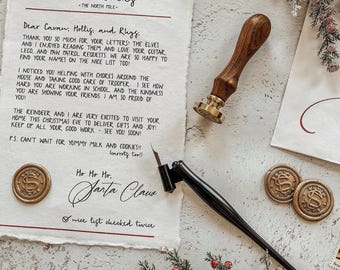 • THE NORTH POLE •
Dear Cavan, Hollis, and Rhys,
THANK YOU SO MUCH FOR YOUR LETTERS! THE ELVES
AND I ENJOYED READING THEM AND LOVE YOUR GUITAR,
LEGO, AND PAW PATROL REQUESTS. WE ARE SO HAPPY TO
FIND YOUR NAMES ON THE NICE LIST TOO!
I NOTICED YOU HELPING WITH CHORES AROUND THE
HOUSE AND TAKING GOOD CARE OF TROOPER. I SEE HOW
HARD YOU ARE WORKING IN SCHOOL, AND THE KINDNESS
YOU ARE SHOWING YOUR FRIENDS. I AM SO PROUD OF
YOU!
THE REINDEER AND I ARE VERY EXCITED TO VISIT YOUR
HOME THIS CHRISTMAS EVE TO DELIVER GIFTS AND JOY.
KEEP UP ALL YOUR GOOD WORK - SEE YOU SOON!
P.S. CAN'T WAIT FOR YUMMY MILK AND COOKIES!!
(carrots too!)
Ho Ho Ho,
Santa Claus
nice list checked twice